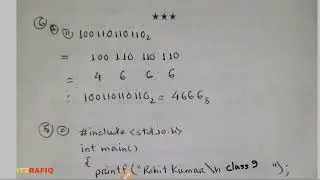 ***
100110110110₂
= 100 110 110 110
= 4 6 6 6
∴ 100110110110₂ = 4666₈
#include <stdio.h>
int main()
{
printf("Rohit Kumar \n class 9 ");
ITZRAFIQ